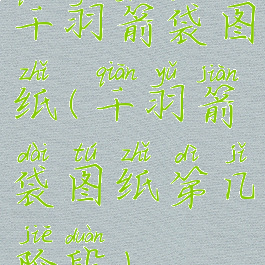 千羽箭袋图
zhǐ qiān yǔ jiàn
纸(千羽箭
dài tú zhǐ dì jǐ
袋图纸第几
jiē duàn
阶段)